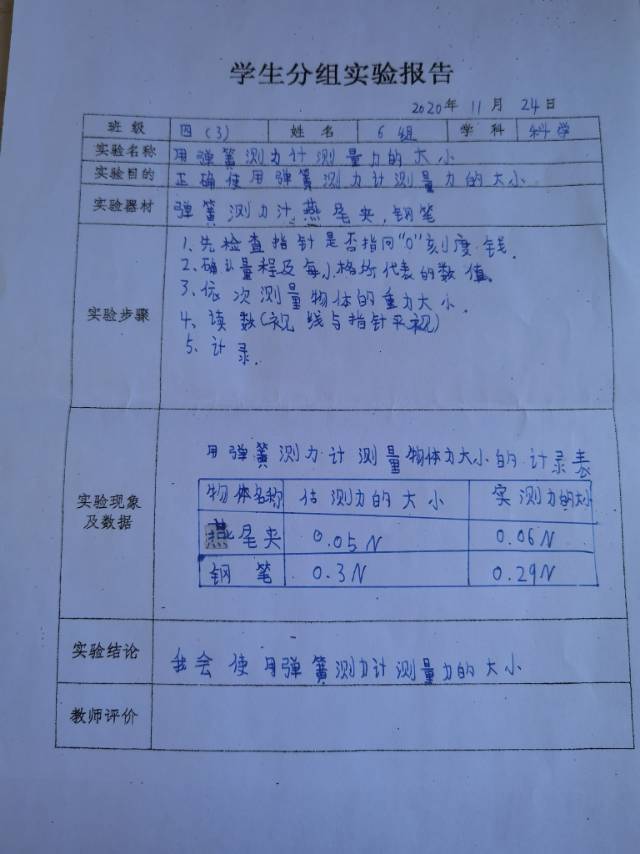 学生分组实验报告
2020年 11月 24日
班级 四(3) 姓名 6组 学科 科学
实验名称 用弹簧测力计测量力的大小
实验目的 正确使用弹簧测力计测量力的大小
实验器材 弹簧测力计,燕尾夹,钢笔
实验步骤
1、先检查指针是否指向"0"刻度线.
2、确认量程及每小格所代表的数值。
3、依次测量物体的重力大小.
4、读数(视线与指针平视)
5、计录.
实验现象及数据
用弹簧测力计测量物体力大小的计录表
物体名称 估测力的大小 实测力的大小
燕尾夹 0.05N 0.06N
钢笔 0.3N 0.29N
实验结论 我会使用弹簧测力计测量力的大小
教师评价